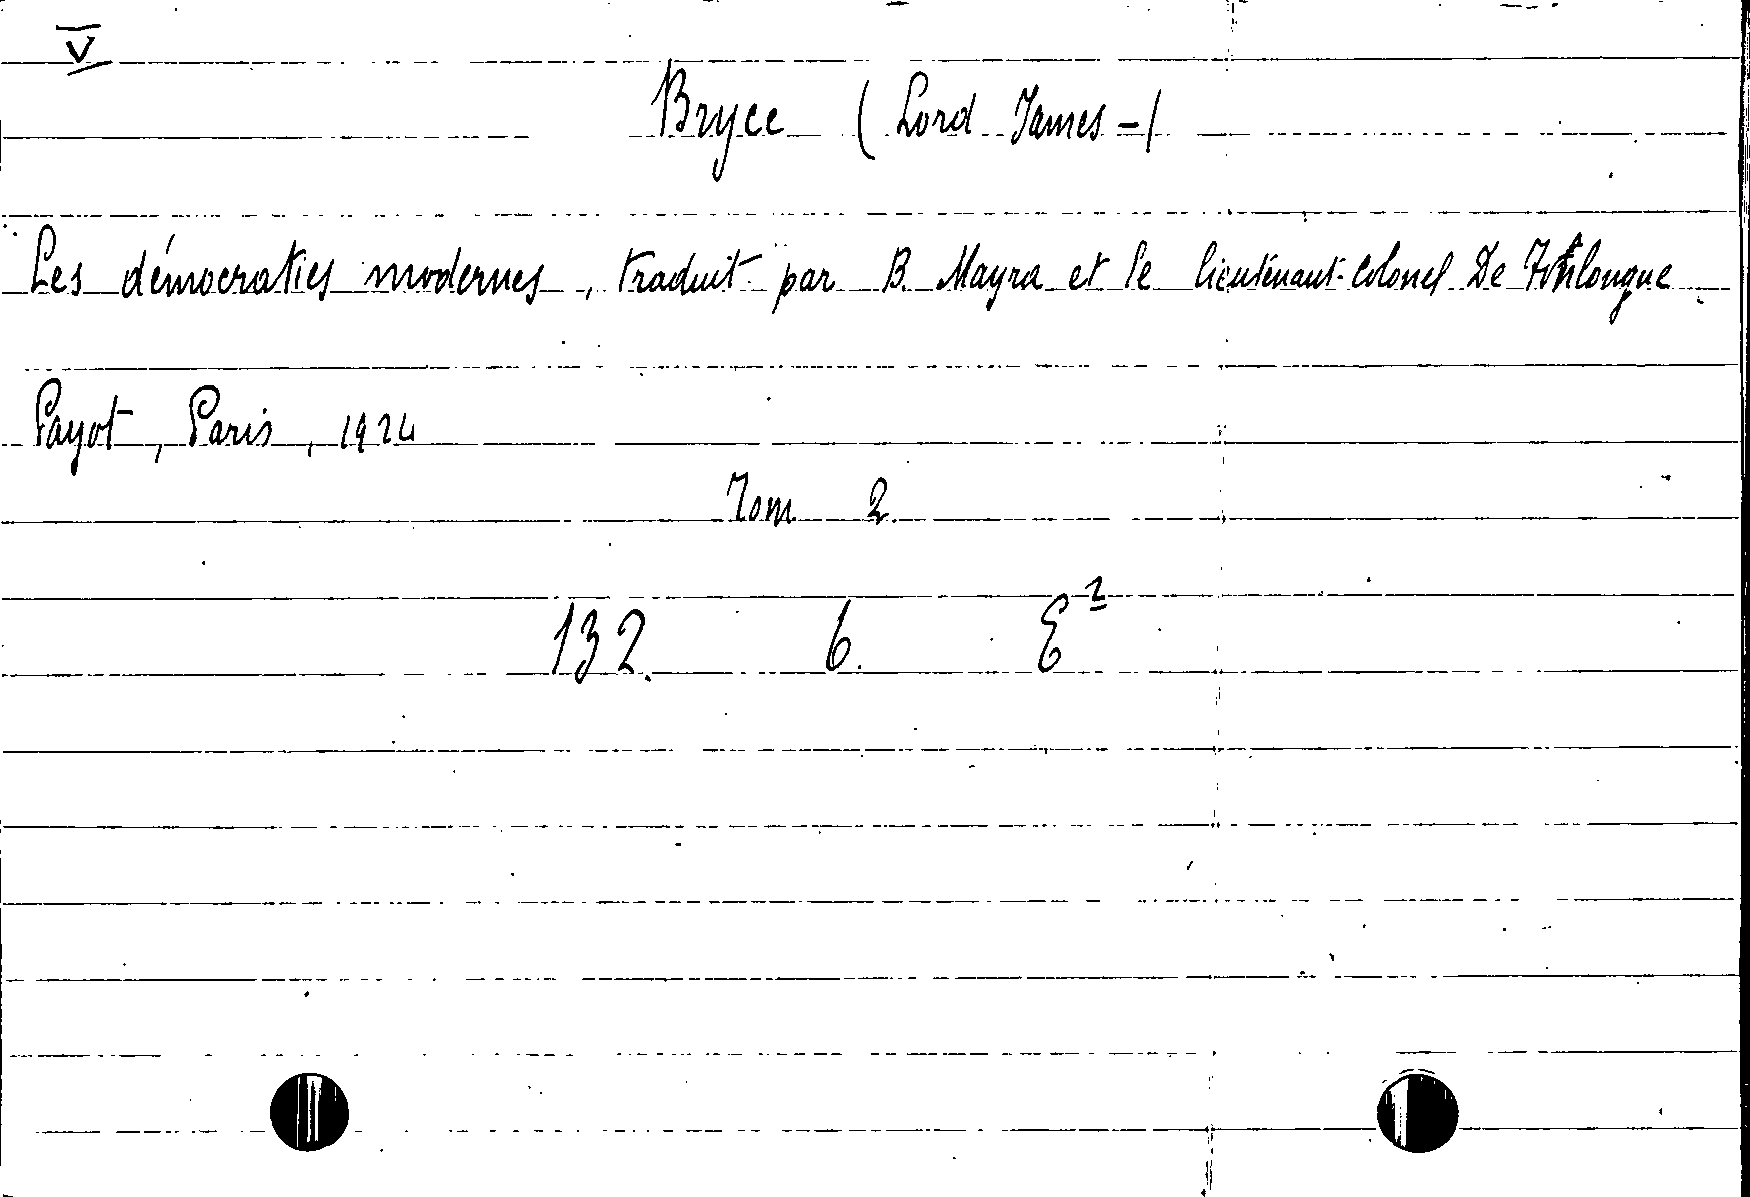 V
Bryce (Lord James -)
Les démocraties modernes, traduit par B. Mayra et le lieutenant-colonel De Fonlongue
Payot, Paris, 1924
Tom 2.
132. 6. E²